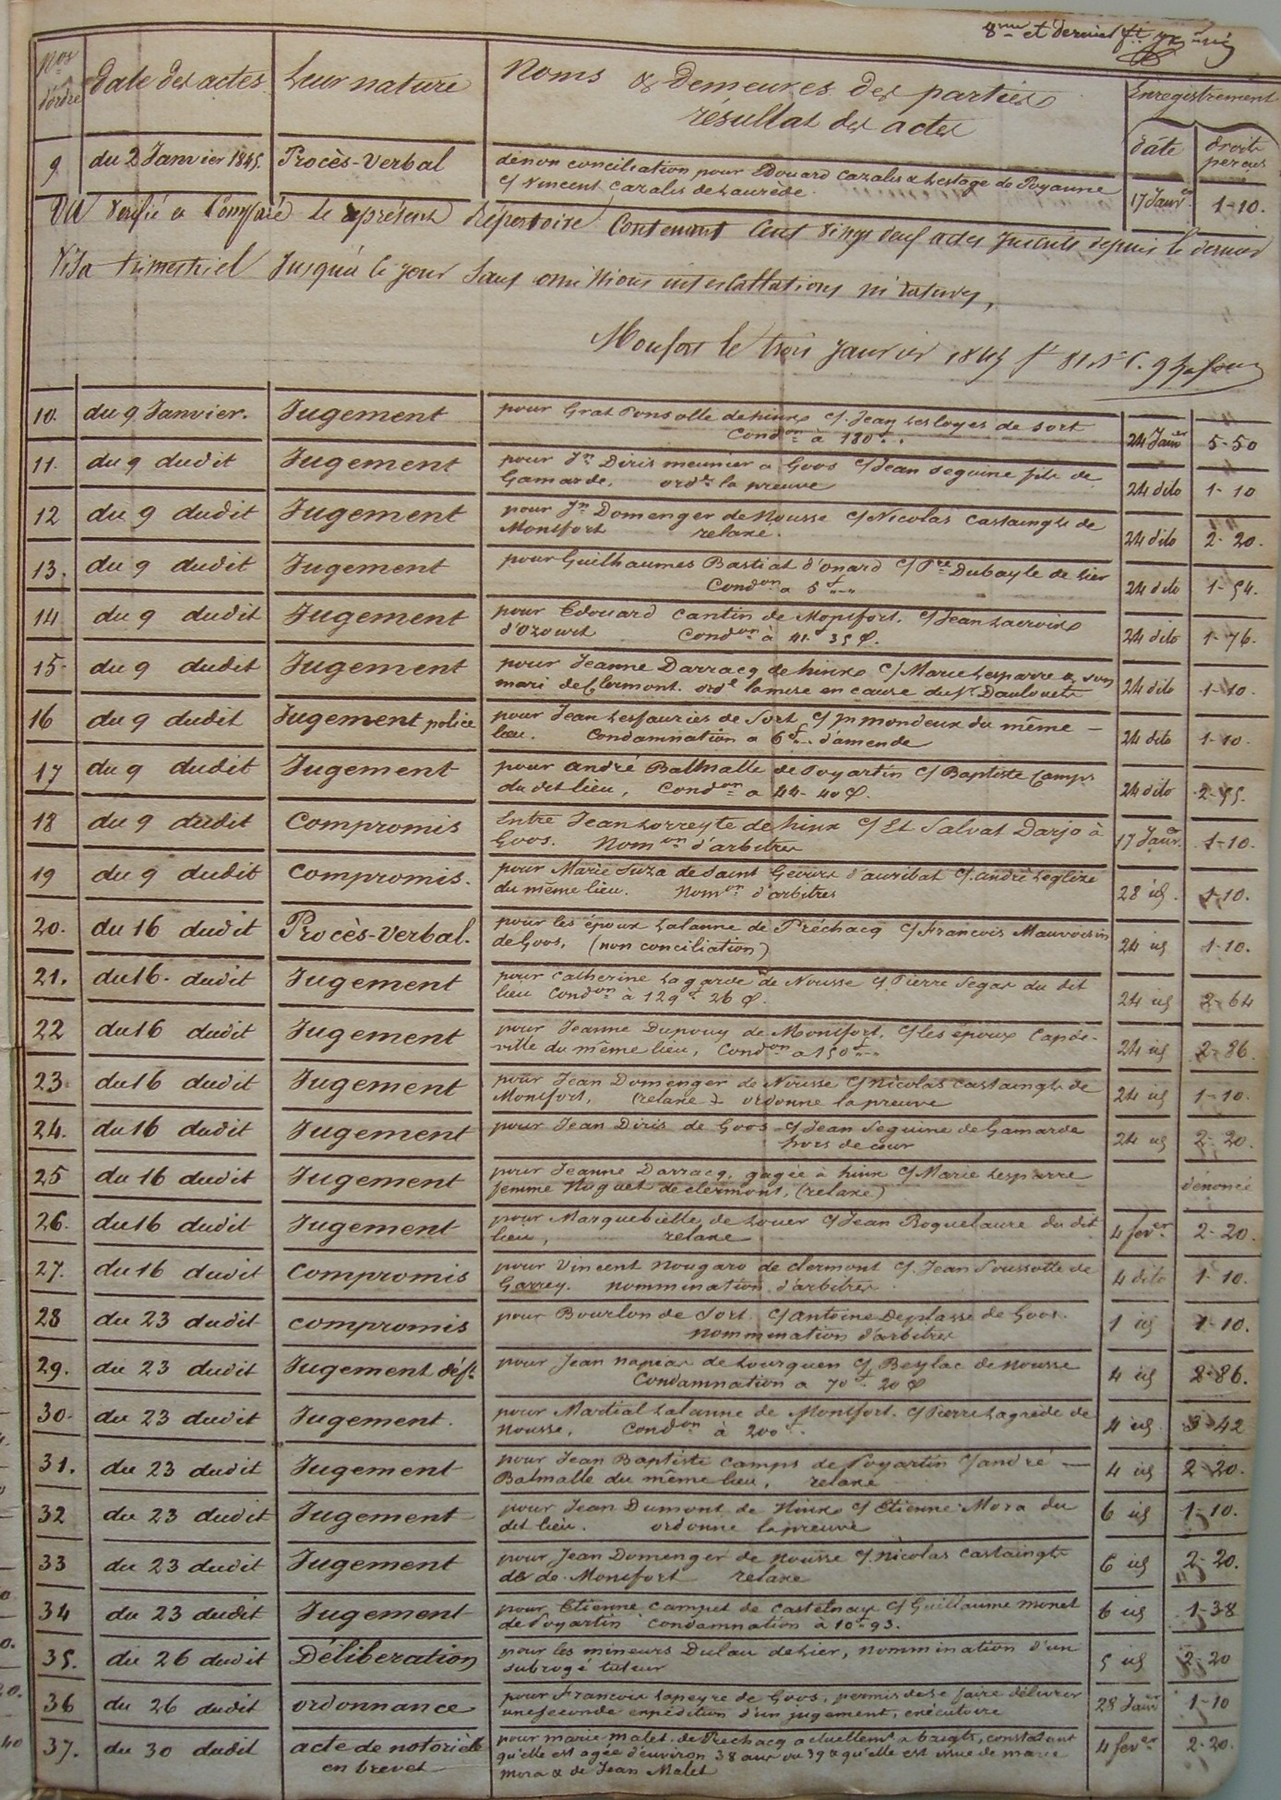 8me et dernier ft
Nos d'ordre
Date des actes
Leur nature
Noms & Demeures des parties
résultat des actes
Enregistrement
date
droits perçus
9 du 2 Janvier 1845. Procès-Verbal de non conciliation pour Edouard Cazalis & Lestage de Poyanne
c/ Vincent Cazalis de Laurède. 17 Janv.er 1-10.
Vu Vérifié et Compfaré le présent Répertoire Contenant Cent vingt neuf actes inscrits depuis le dernier
Visa trimestriel Jusqu'à le jour Sauf omissions interlattations ni ratures,
Monfort le trois Janvier 1845
10. du 9 Janvier. Jugement pour Grat Ponsolle de hinx c/. Jean Lesloyes de Sort
Cond.on à 180 24 Janv.er 5-50
11. du 9 dudit Jugement pour Jn Diris meunier a Goos c/ Jean Seguine fils de
Gamarde, ord.e la preuve 24 dito 1-10
12 du 9 dudit Jugement pour Jn Domenger de Nousse c/ Nicolas Castaingts de
Montfort relaxe. 24 dito 2-20.
13. du 9 dudit Jugement pour Guilhaumes Bastiat d'onard c/ Pre Dubayle de Lier
Cond.on a 5f 24 dito 1-54.
14 du 9 dudit Jugement pour Edouard Cantin de Montfort. c/ Jean Lacroix
d'Ozourt Cond.on a 41f 35 c. 24 dito 1-76.
15 du 9 dudit Jugement pour Jeanne Darracq de hinx c/ Marie Lesparre & son
mari de Clermont. ord.e la mise en cause du Sr Daulouets 24 dito 1-10.
16 du 9 dudit Jugement police pour Jean Lesfauries de Sort c/ Jn mondeux du même
lieu. Condamnation a 6f d'amende 24 dito 1-10.
17 du 9 dudit Jugement pour andré Balmalle de Poyartin c/ Baptiste Camps
du dit lieu, Cond.on a 44-40 c. 24 dito 2-55.
18 du 9 dudit Compromis Entre Jean Lorreyte de hinx c/ Et Salvat Darjo à
Goos. Nom.on d'arbitres 17 Janv.er 1-10.
19 du 9 dudit Compromis. pour Marie Suza de Saint Geours d'auribat c/. andré Leglize
du même lieu. Nom.on d'arbitres 28 id. 1-10.
20. du 16 dudit Procès-Verbal. pour les époux Lalanne de Préchacq c/ François Mauvoisin
de Goos, (non conciliation) 24 id 1-10.
21. du 16. dudit Jugement pour Catherine Lagarde de Nousse c/ Pierre Segas du dit
lieu Cond.on à 129f 26 c. 24 id 2-64
22 du 16 dudit Jugement pour Jeanne Dupouy de Montfort. c/ les époux Capde-
ville du même lieu, Cond.on a 150f 24 id 2-86.
23 du 16 dudit Jugement pour Jean Domenger de Nousse c/ Nicolas Castaingts de
Montfort, (relaxe) ordonne la preuve 24 id 1-10.
24. du 16 dudit Jugement pour Jean Diris de Goos c/ Jean Seguine de Gamarde
hors de cour 24 id 2-20.
25 du 16 dudit Jugement pour Jeanne Darracq, gagée à hinx c/ Marie Lesparre
femme Noguet de clermont, (relaxe) dénoncé
26. du 16 dudit Jugement pour Marquebielle, de Louer c/ Jean Roquelaure du dit
lieu, relaxe 4 fev.er 2-20.
27. du 16 dudit Compromis pour Vincent Nougaro de clermont c/. Jean Soussotte de
Garrey. nommination d'arbitres 4 dito 1-10.
28 du 23 dudit compromis pour Bourlon de Sort. c/ antoine Deplasse de Goos.
nommination d'arbitres 1 id 1-10.
29. du 23 dudit Jugement déft pour Jean napias de Lourquen c/ Beylac de nousse
Condamnation a 70f 20 c 4 id 2-86.
30. du 23 dudit Jugement. pour Martial Lalanne de Montfort. c/ Pierre Lagrède de
nousse, Cond.on à 200f. 4 id 3-42
31. du 23 dudit Jugement pour Jean Baptiste Camps de Poyartin c/ andré
Balmalle du même lieu, relaxe 4 id 2-20.
32 du 23 dudit Jugement pour Jean Dumont de Hinx c/ Etienne Mora du
dit lieu. ordonne la preuve 6 id 1-10.
33 du 23 dudit Jugement pour Jean Domenger de nousse c/ nicolas Castaingts
de Montfort relaxe 6 id 2-20.
34 du 23 dudit Jugement pour Etienne Campet de Castelnau c/ Guillaume monet
de Poyartin condamnation à 10f 93. 6 id 1-38
35. du 26 dudit Délibération pour les mineurs Dulau de Lier, nommination d'un
subrogé tuteur 5 id 2-20
36 du 26 dudit ordonnance pour François Lapeyre de Goos, permis de se faire délivrer
une seconde expédition d'un jugement, exécutoire 28 Janv.er 1-10
37. du 30 dudit acte de notoriété en brevet pour marie malet de Préchacq actuellemt a baigts, constatant
qu'elle est agée d'environ 38 ans ou 39 & qu'elle est issue de marie
Mora & de Jean Malet 4 fev.er 2-20.